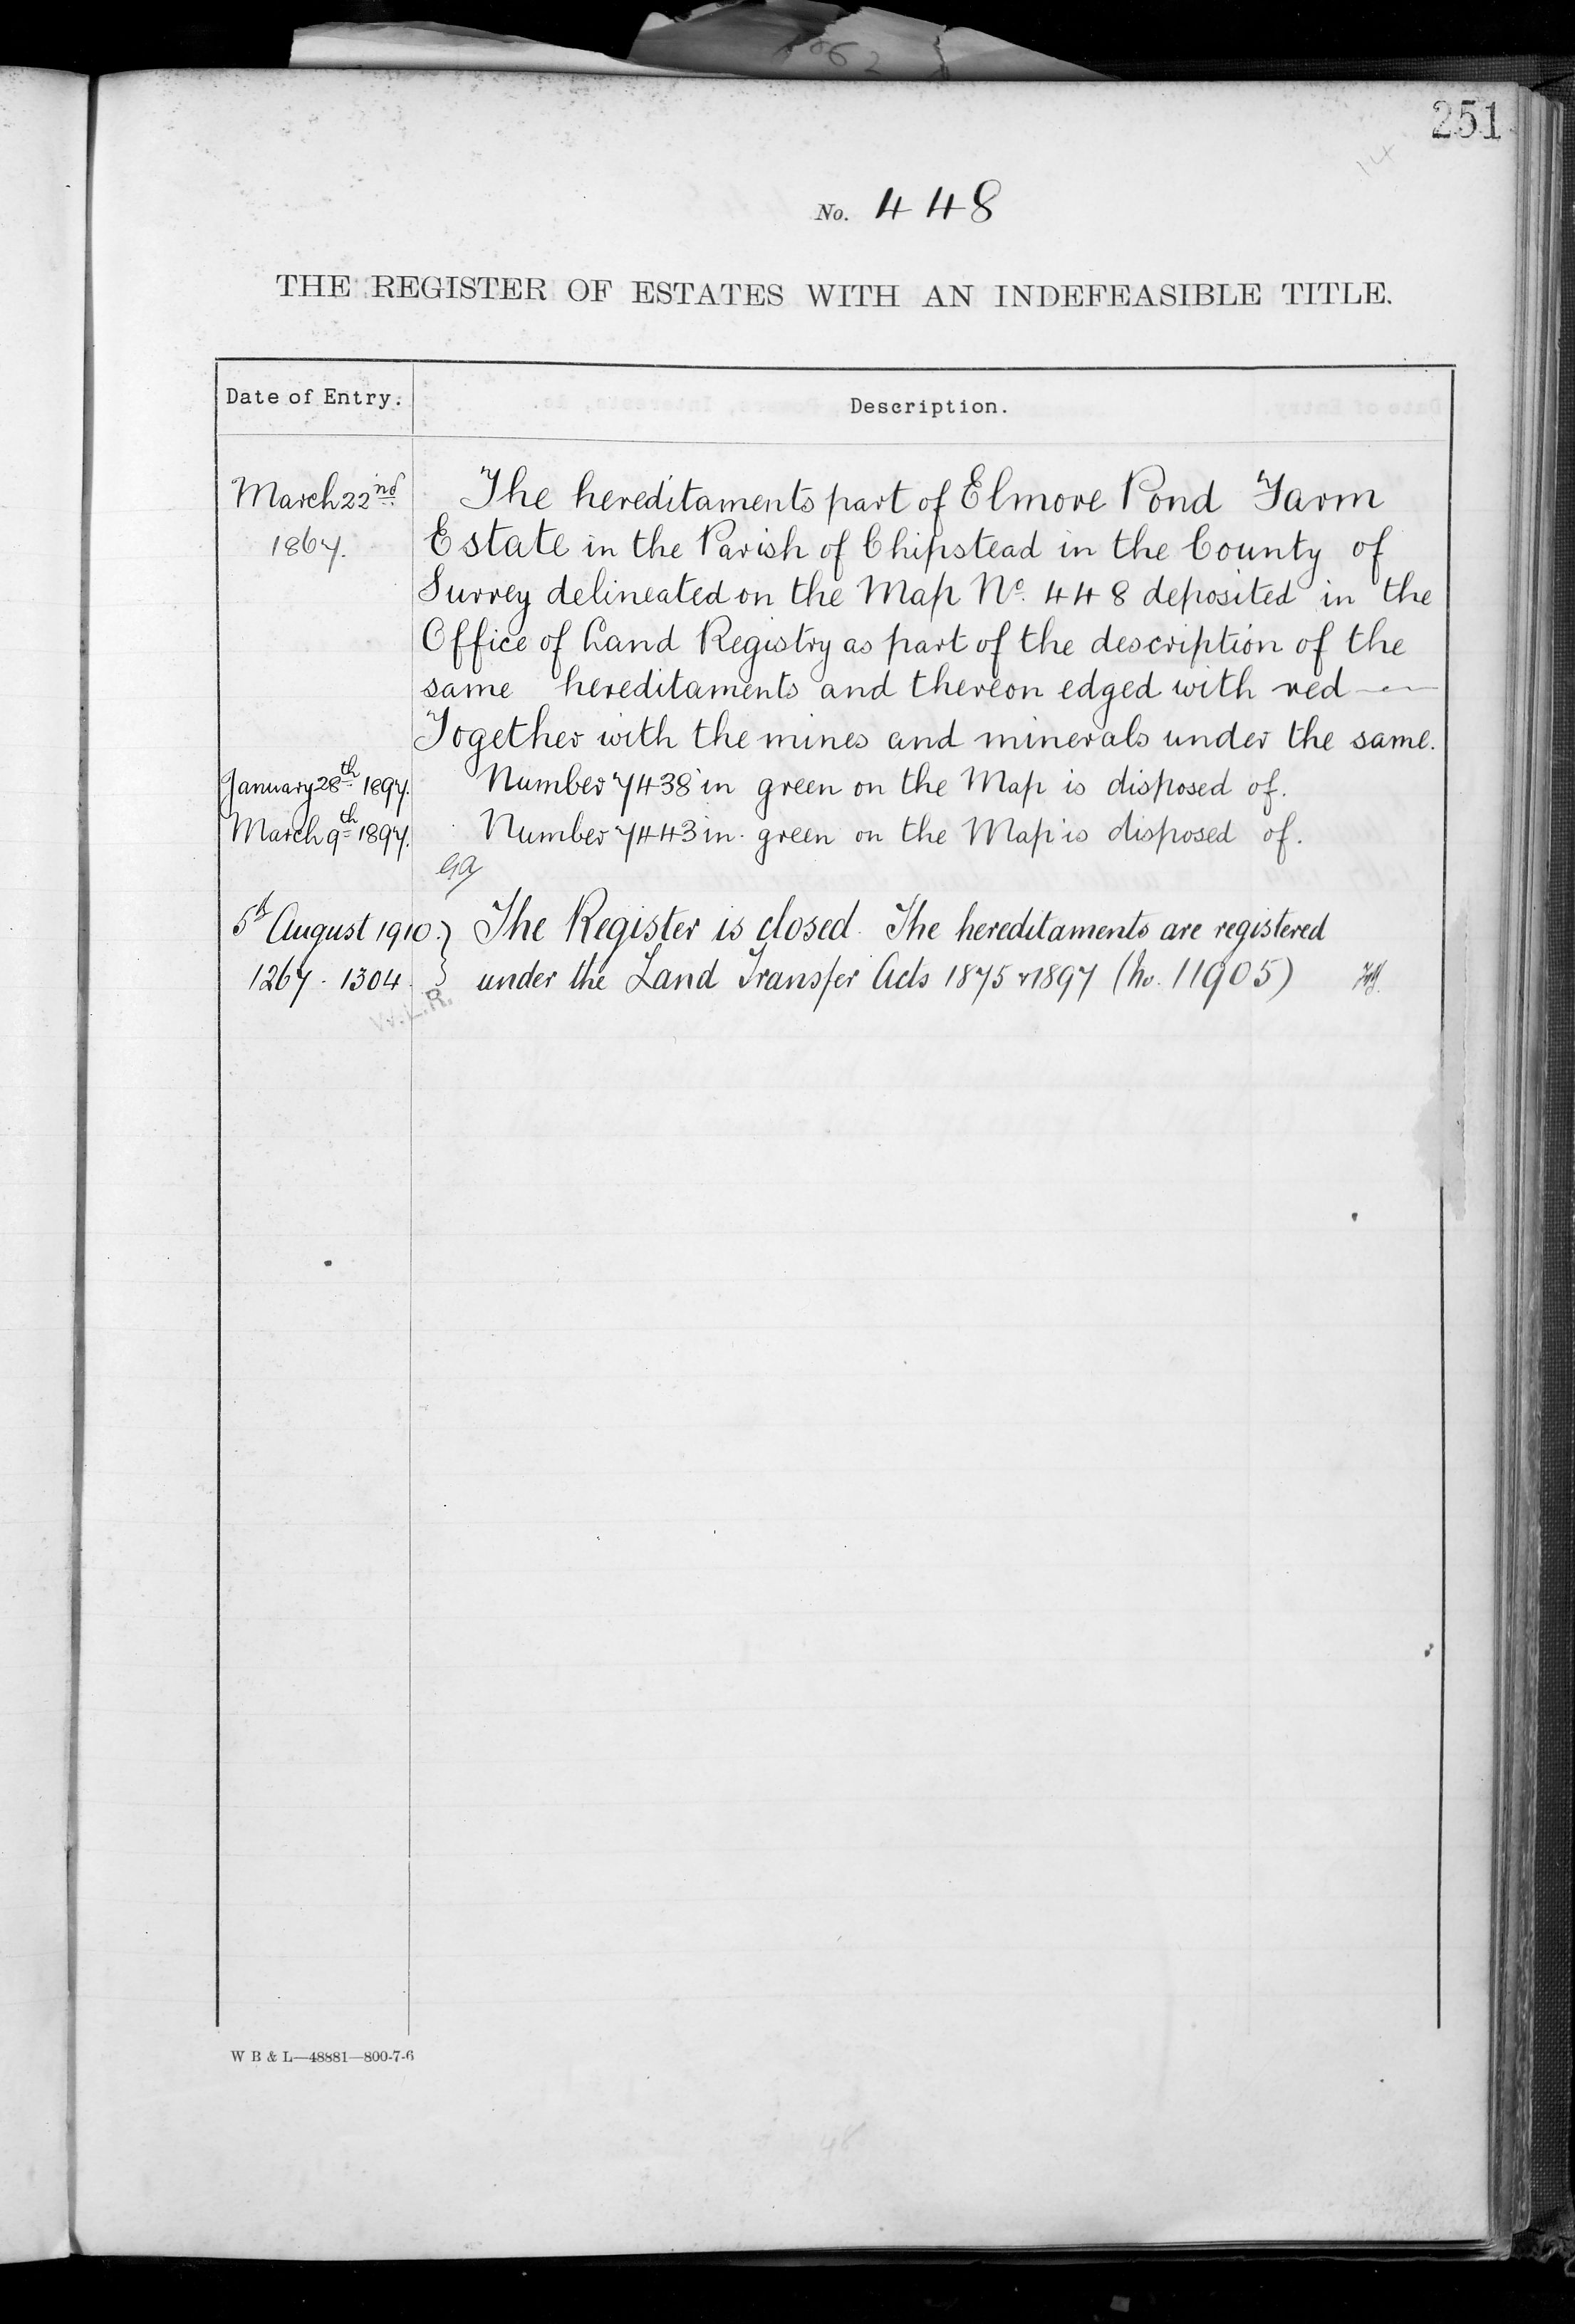 251
14
No. 448
THE REGISTER OF ESTATES WITH AN INDEFEASIBLE TITLE.
Date of Entry. Description.
March 22nd The hereditaments part of Elmore Pond Farm
1867. Estate in the Parish of Chipstead in the County of
Surrey delineated on the Map No. 448 deposited in the
Office of Land Registry as part of the description of the
same hereditaments and thereon edged with red
Together with the mines and minerals under the same.
January 28th 1897. Number 7438 in green on the Map is disposed of.
March 9th 1897. Number 7443 in green on the Map is disposed of.
5th August 1910. } The Register is closed. The hereditaments are registered
1267. 1304. } under the Land Transfer Acts 1875 & 1897 (No. 11905)
W.L.R.
W B & L—48881—800-7-6
48